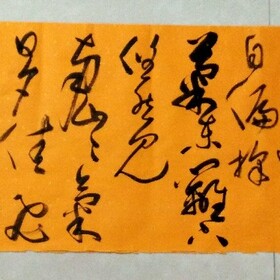 自偏採
菊東籬下
悠然見
南山々氣
日夕佳飛